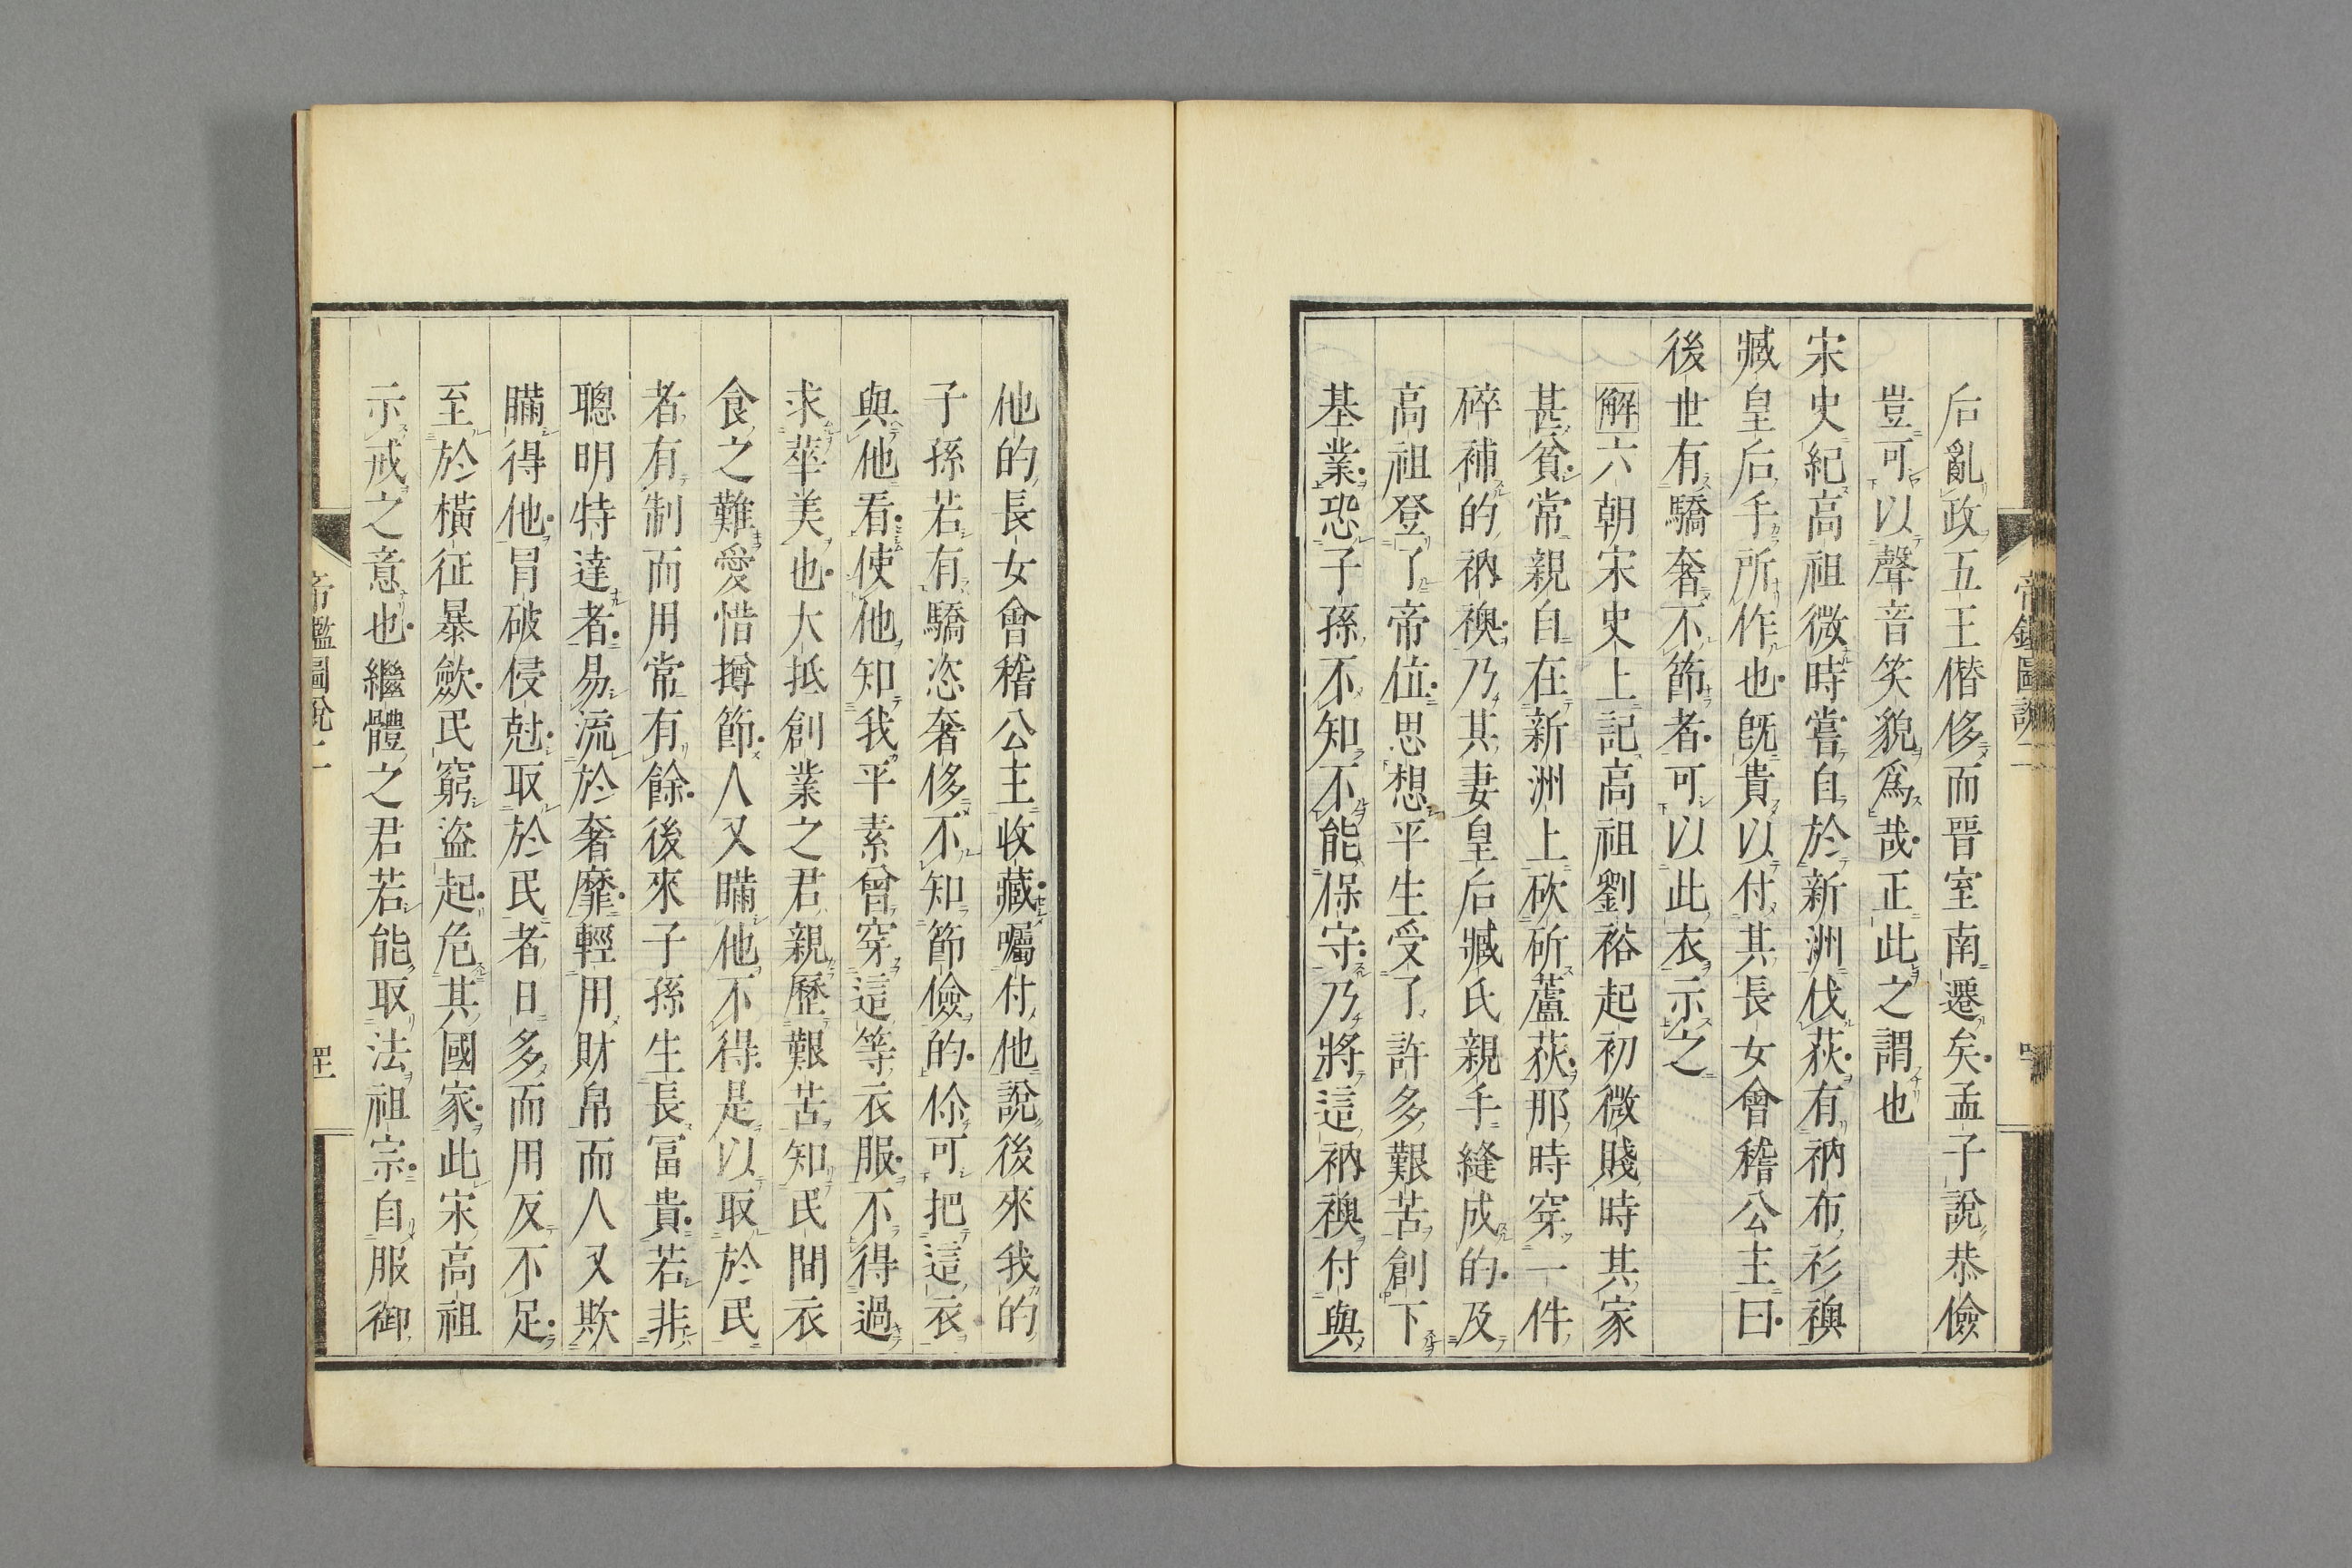 后亂政五王僭侈而晋室南遷矣孟子說恭儉
豈可以聲音笑貌爲哉正此之謂也
宋史紀高祖微時嘗自於新洲伐荻有衲布衫襖
臧皇后手所作也既貴以付其長女會稽公主曰
後世有驕奢不節者可以此衣示之
解六朝宋史上記高祖劉裕起初微賤時其家
甚貧常親自在新洲上砍斫蘆荻那時穿一件
碎補的衲襖乃其妻皇后臧氏親手縫成的及
高祖登了帝位思想平生受了許多艱苦創下
基業恐子孫不知不能保守乃將這衲襖付與
他的長女會稽公主收藏囑付他說後來我的
子孫若有驕恣奢侈不知節儉的你可把這衣
與他看使他知我平素曾穿這等衣服不得過
求華美也大抵創業之君親歷艱苦知民間衣
食之難愛惜撙節人又瞞他不得是以取於民
者有制而用常有餘後來子孫生長冨貴若非
聰明特達者易流於奢靡輕用財帛而人又欺
瞞得他冒破侵尅取於民者日多而用反不足
至於橫征暴斂民窮盜起危其國家此宋高祖
示戒之意也繼體之君若能取法祖宗自服御
帝鑑圖說二